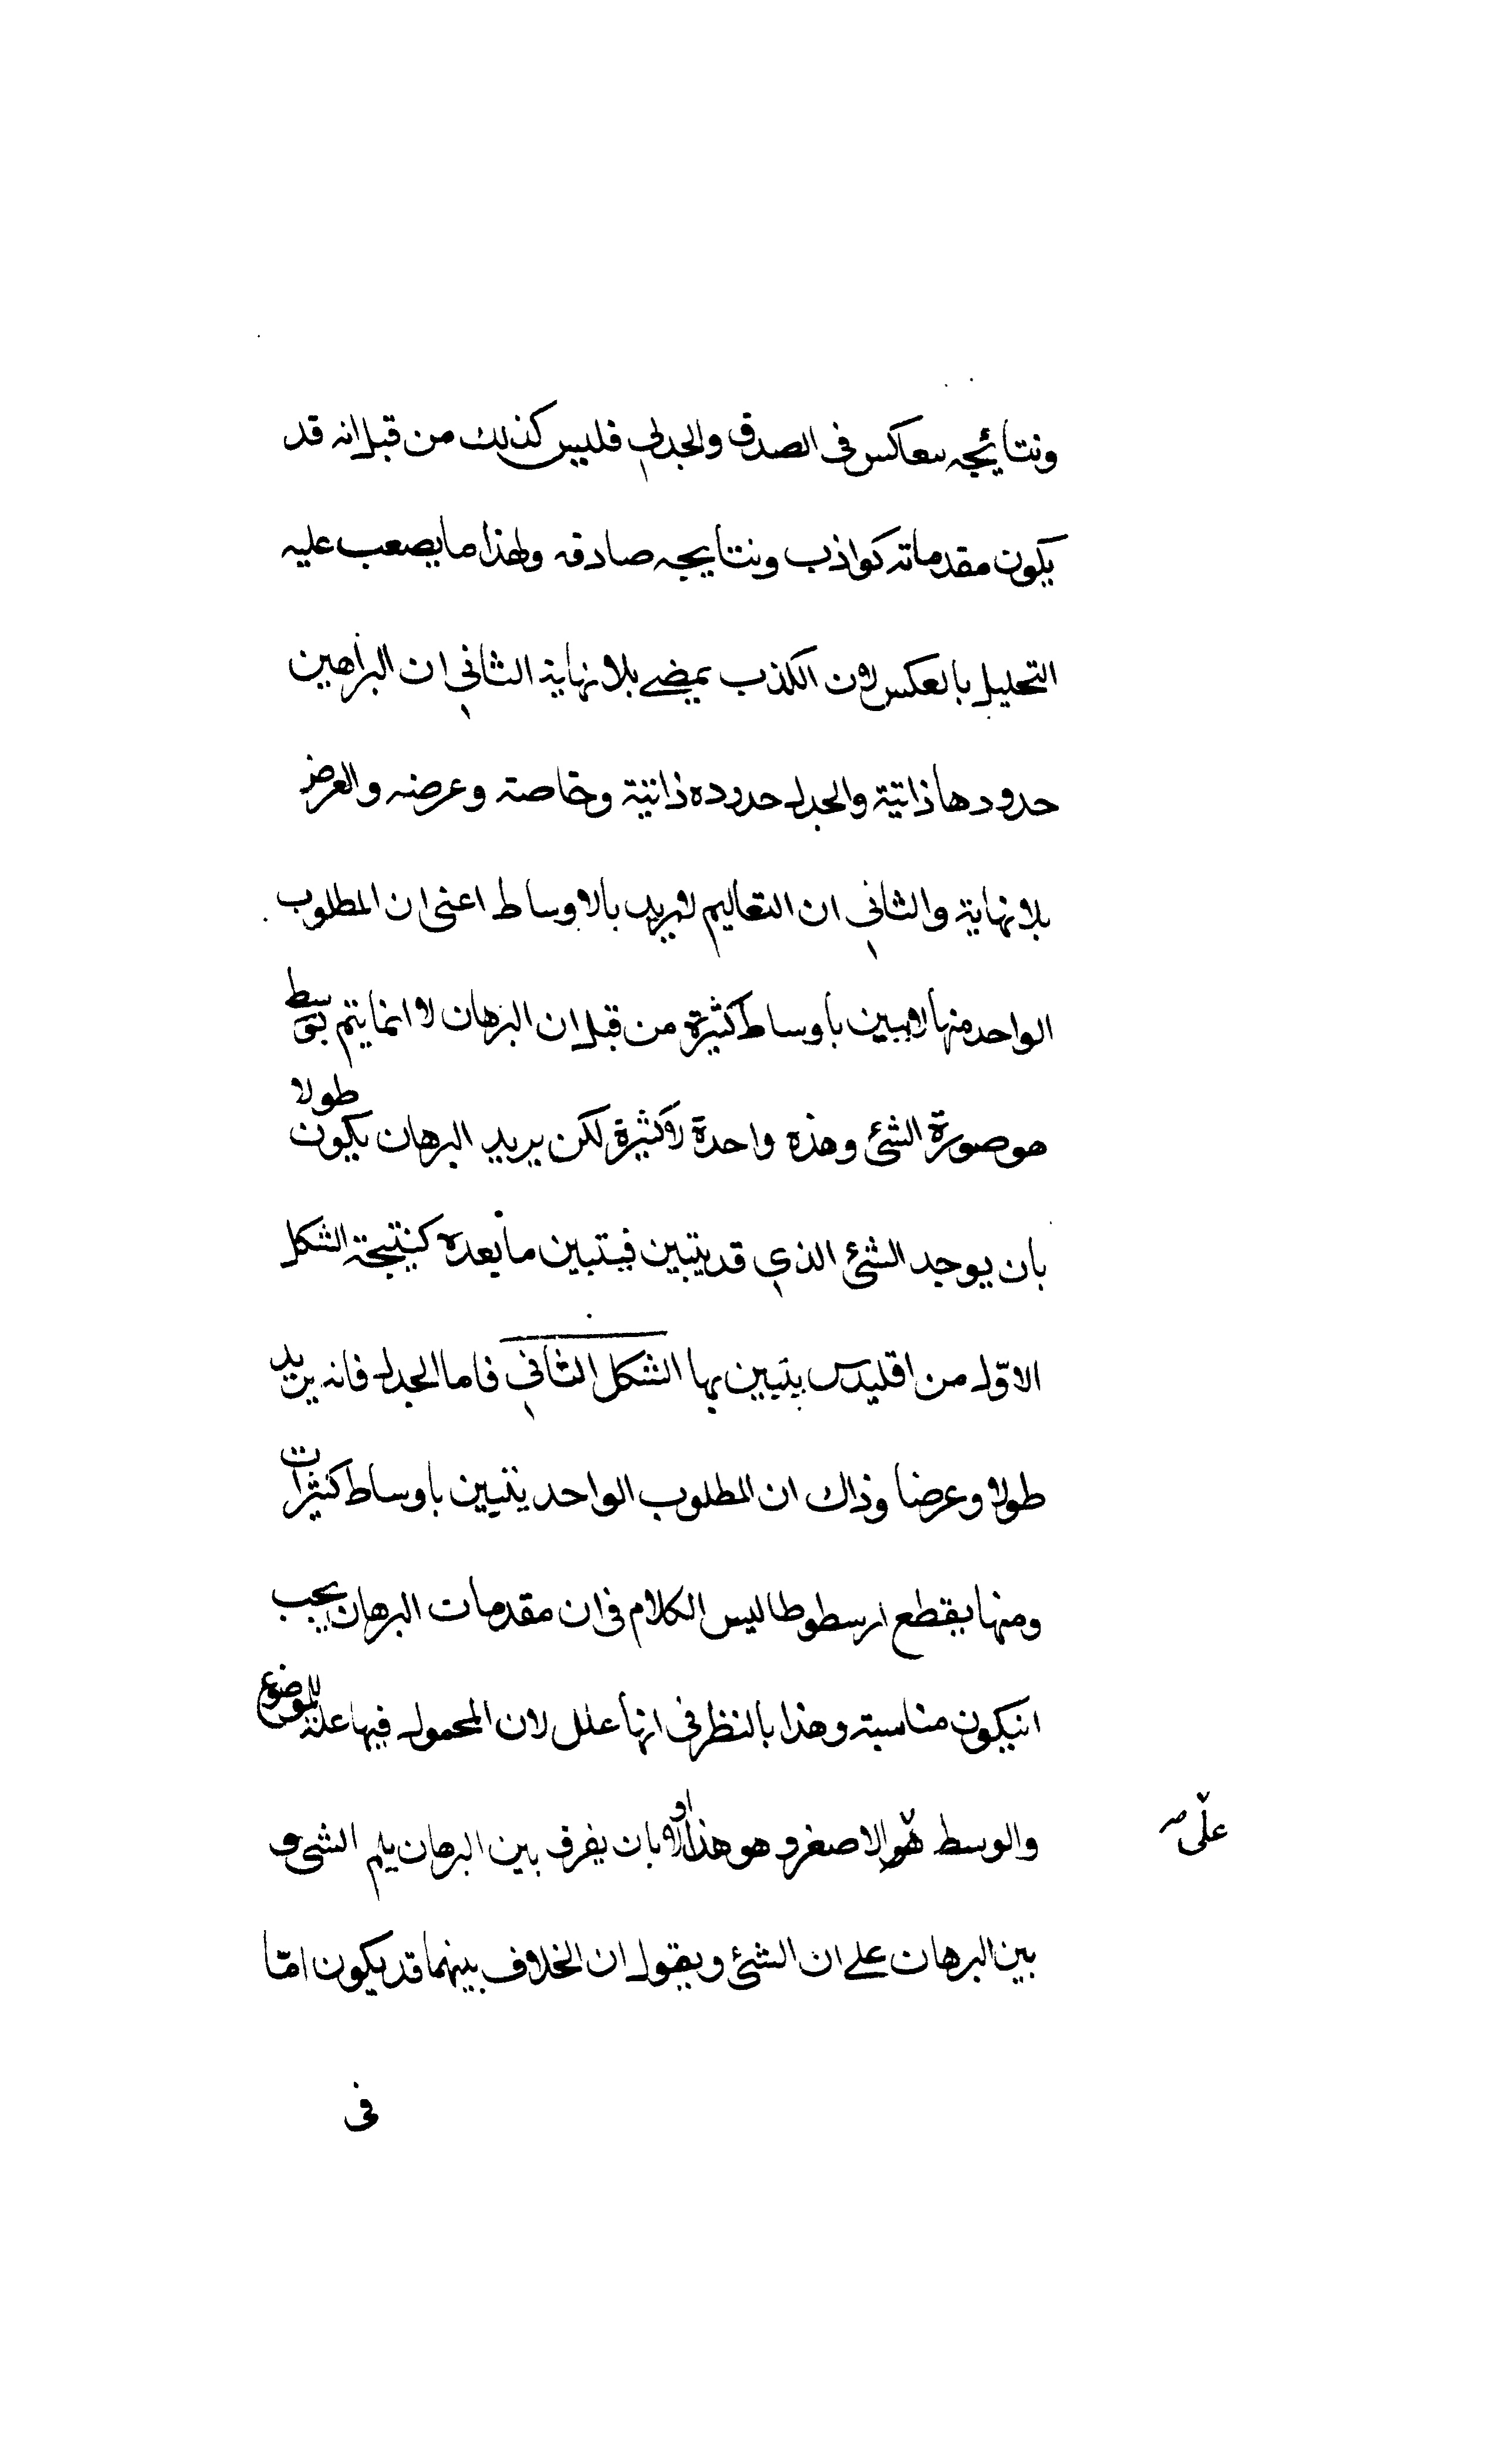 ونتايجه سعاكس فى الصدق والجدلي فليس كذلك من قبل انه قد
يكون مقدماته كواذب ونتايجه صادقه ولهذا ما يصعب عليه
التحليل بالعكس لان الكذب يمضے بلا نهاية الثاني ان البراهين
حدودها ذاتية والجدل حدوده ذاتية وخاصة وعرضه والعرض
بلا نهاية والثاني ان التعاليم لا يريد بالاوساط اعنى ان المطلوب
الواحد منها لا يبين باوساط كثيرة من قبل ان البرهان لا انما يتم بتوسط
هو صورة الشئ وهذه واحدة لا كثيرة لكن يريد البرهان يكون طولا
بان يوجد الشئ الذي قد يتبين فيتبين ما بعده كنتيجة الشكل
الاوّل من اقليدس يتبين بها الشكل الثاني فاما الجدل فانه يريد
طولا وعرضا وذاك ان المطلوب الواحد يتبين باوساط كثيرات
ومنها يقطع ارسطوطاليس الكلام فى ان مقدمات البرهان يجب
انيكون مناسبته وهذا بالنظر فى انها علل لان المحمول فيها علة للموضوع
والوسط هو الاصغر وهو هذا اولا بان يفرق بين البرهان يلم الشئ و
علّى صح
بين البرهان علے ان الشئ ويقول ان الخلاف بينهما قد يكون امّا
فى